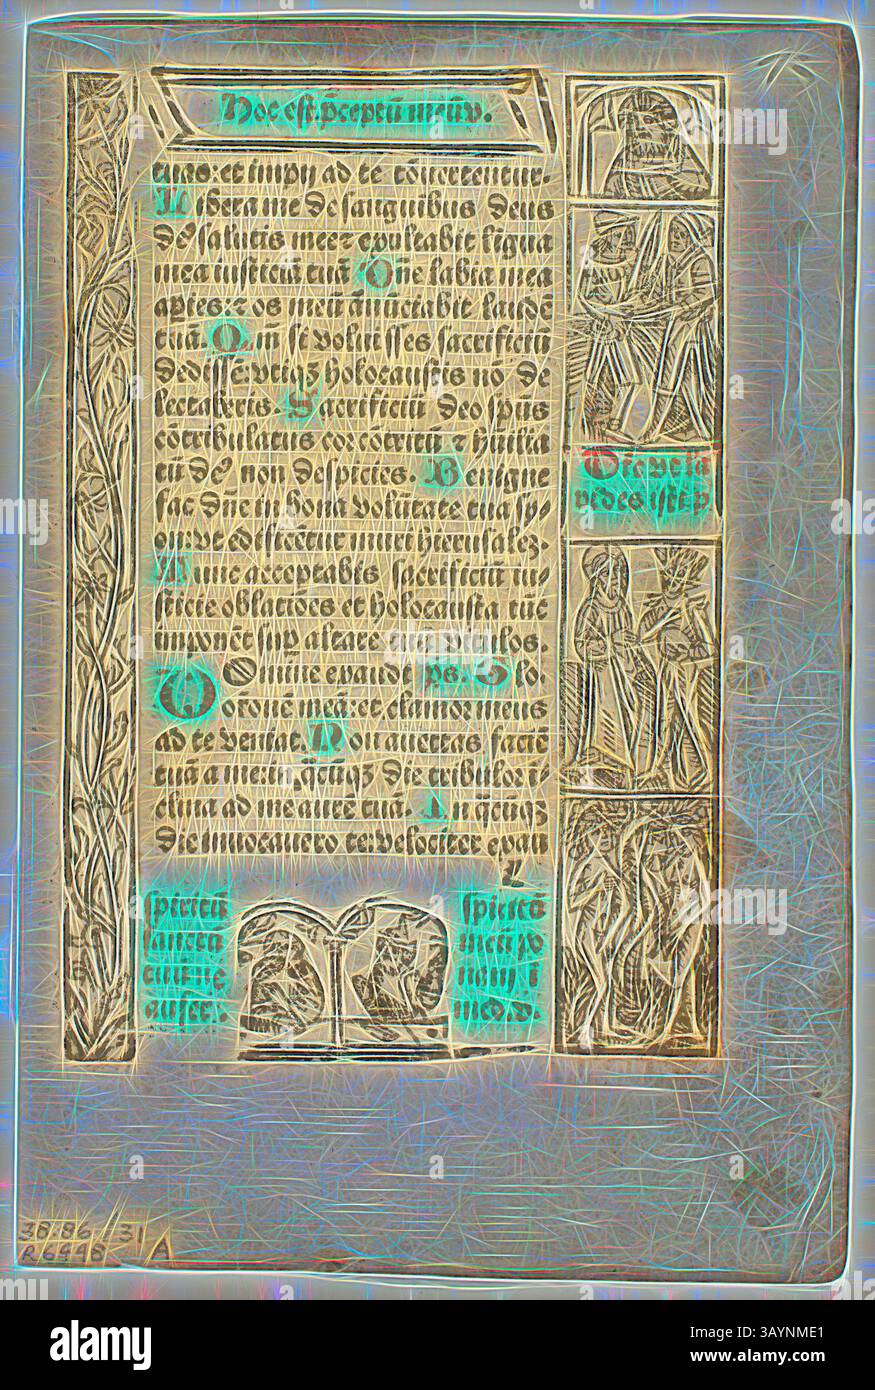 Hoc est p̄ceptū meū ꝟ.
tuas: et impij ad te cōuertentur.
Libera me de sanguibus deus
de salutis mee ⁊ exultabit ligua
mea iusticiā tuā Dn̄e labia mea
apies: ⁊ os meū ānūciabit laudē
tuā. Qm̄ si voluisses sacrificiū
dedissē: vtiqꝫ holocaustis nō de
lectaberis. Sacrificiū deo spūs
cōtribulatus cor cōtritū ⁊ hūilia
tū de⁹ non despicies. Benigne
fac dn̄e in bona volūtate tua sy-
on: vt edificētur muri hierusalez.
Tunc acceptabis sacrificiū iu-
sticie oblatiōes et holocausta tūc
imponēt sup altare tuū vitulos.
Dn̄e exaudi ps. Do.
orōne meā: et clamor meus
ad te veniat. Non auertas faciē
tuā a me: in q̄cūqꝫ die tribulor i-
clina ad me aurē tuā. In q̄cūqꝫ
die inuocauero te: velociter exau
Die ve la
spiritū
sanctū
auser.
spiritū
meū po
nam i
med. d.
38.86.31 A
R 6448
alamy
Image ID: 3AYNME1
www.alamy.com